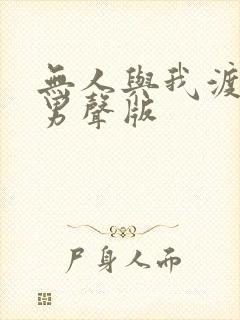 無人與我渡
男聲版
尸身人而